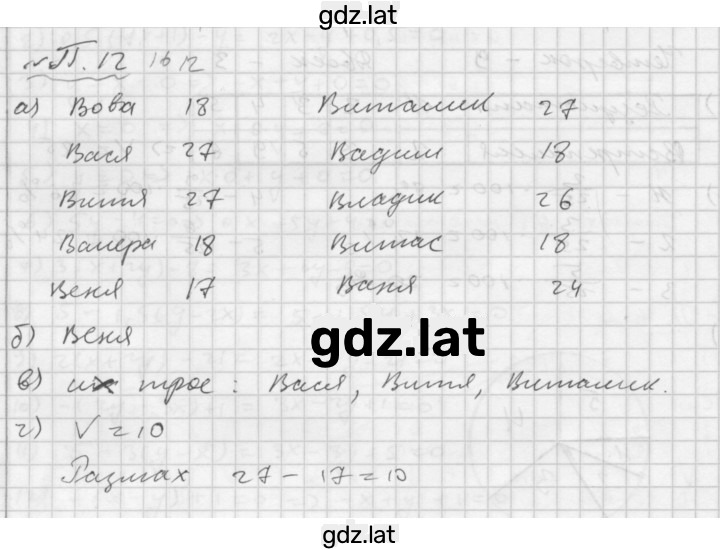 gdz.lat
П. 12 16 12
а) Вова 18 Виталик 27
Вася 27 Вадим 18
Витя 27 Владик 26
Валера 18 Витас 18
Веня 17 Ваня 24
б) Веня
gdz.lat
в) их трое : Вася, Витя, Виталик.
г) V = 10
Размах 27 - 17 = 10
gdz.lat